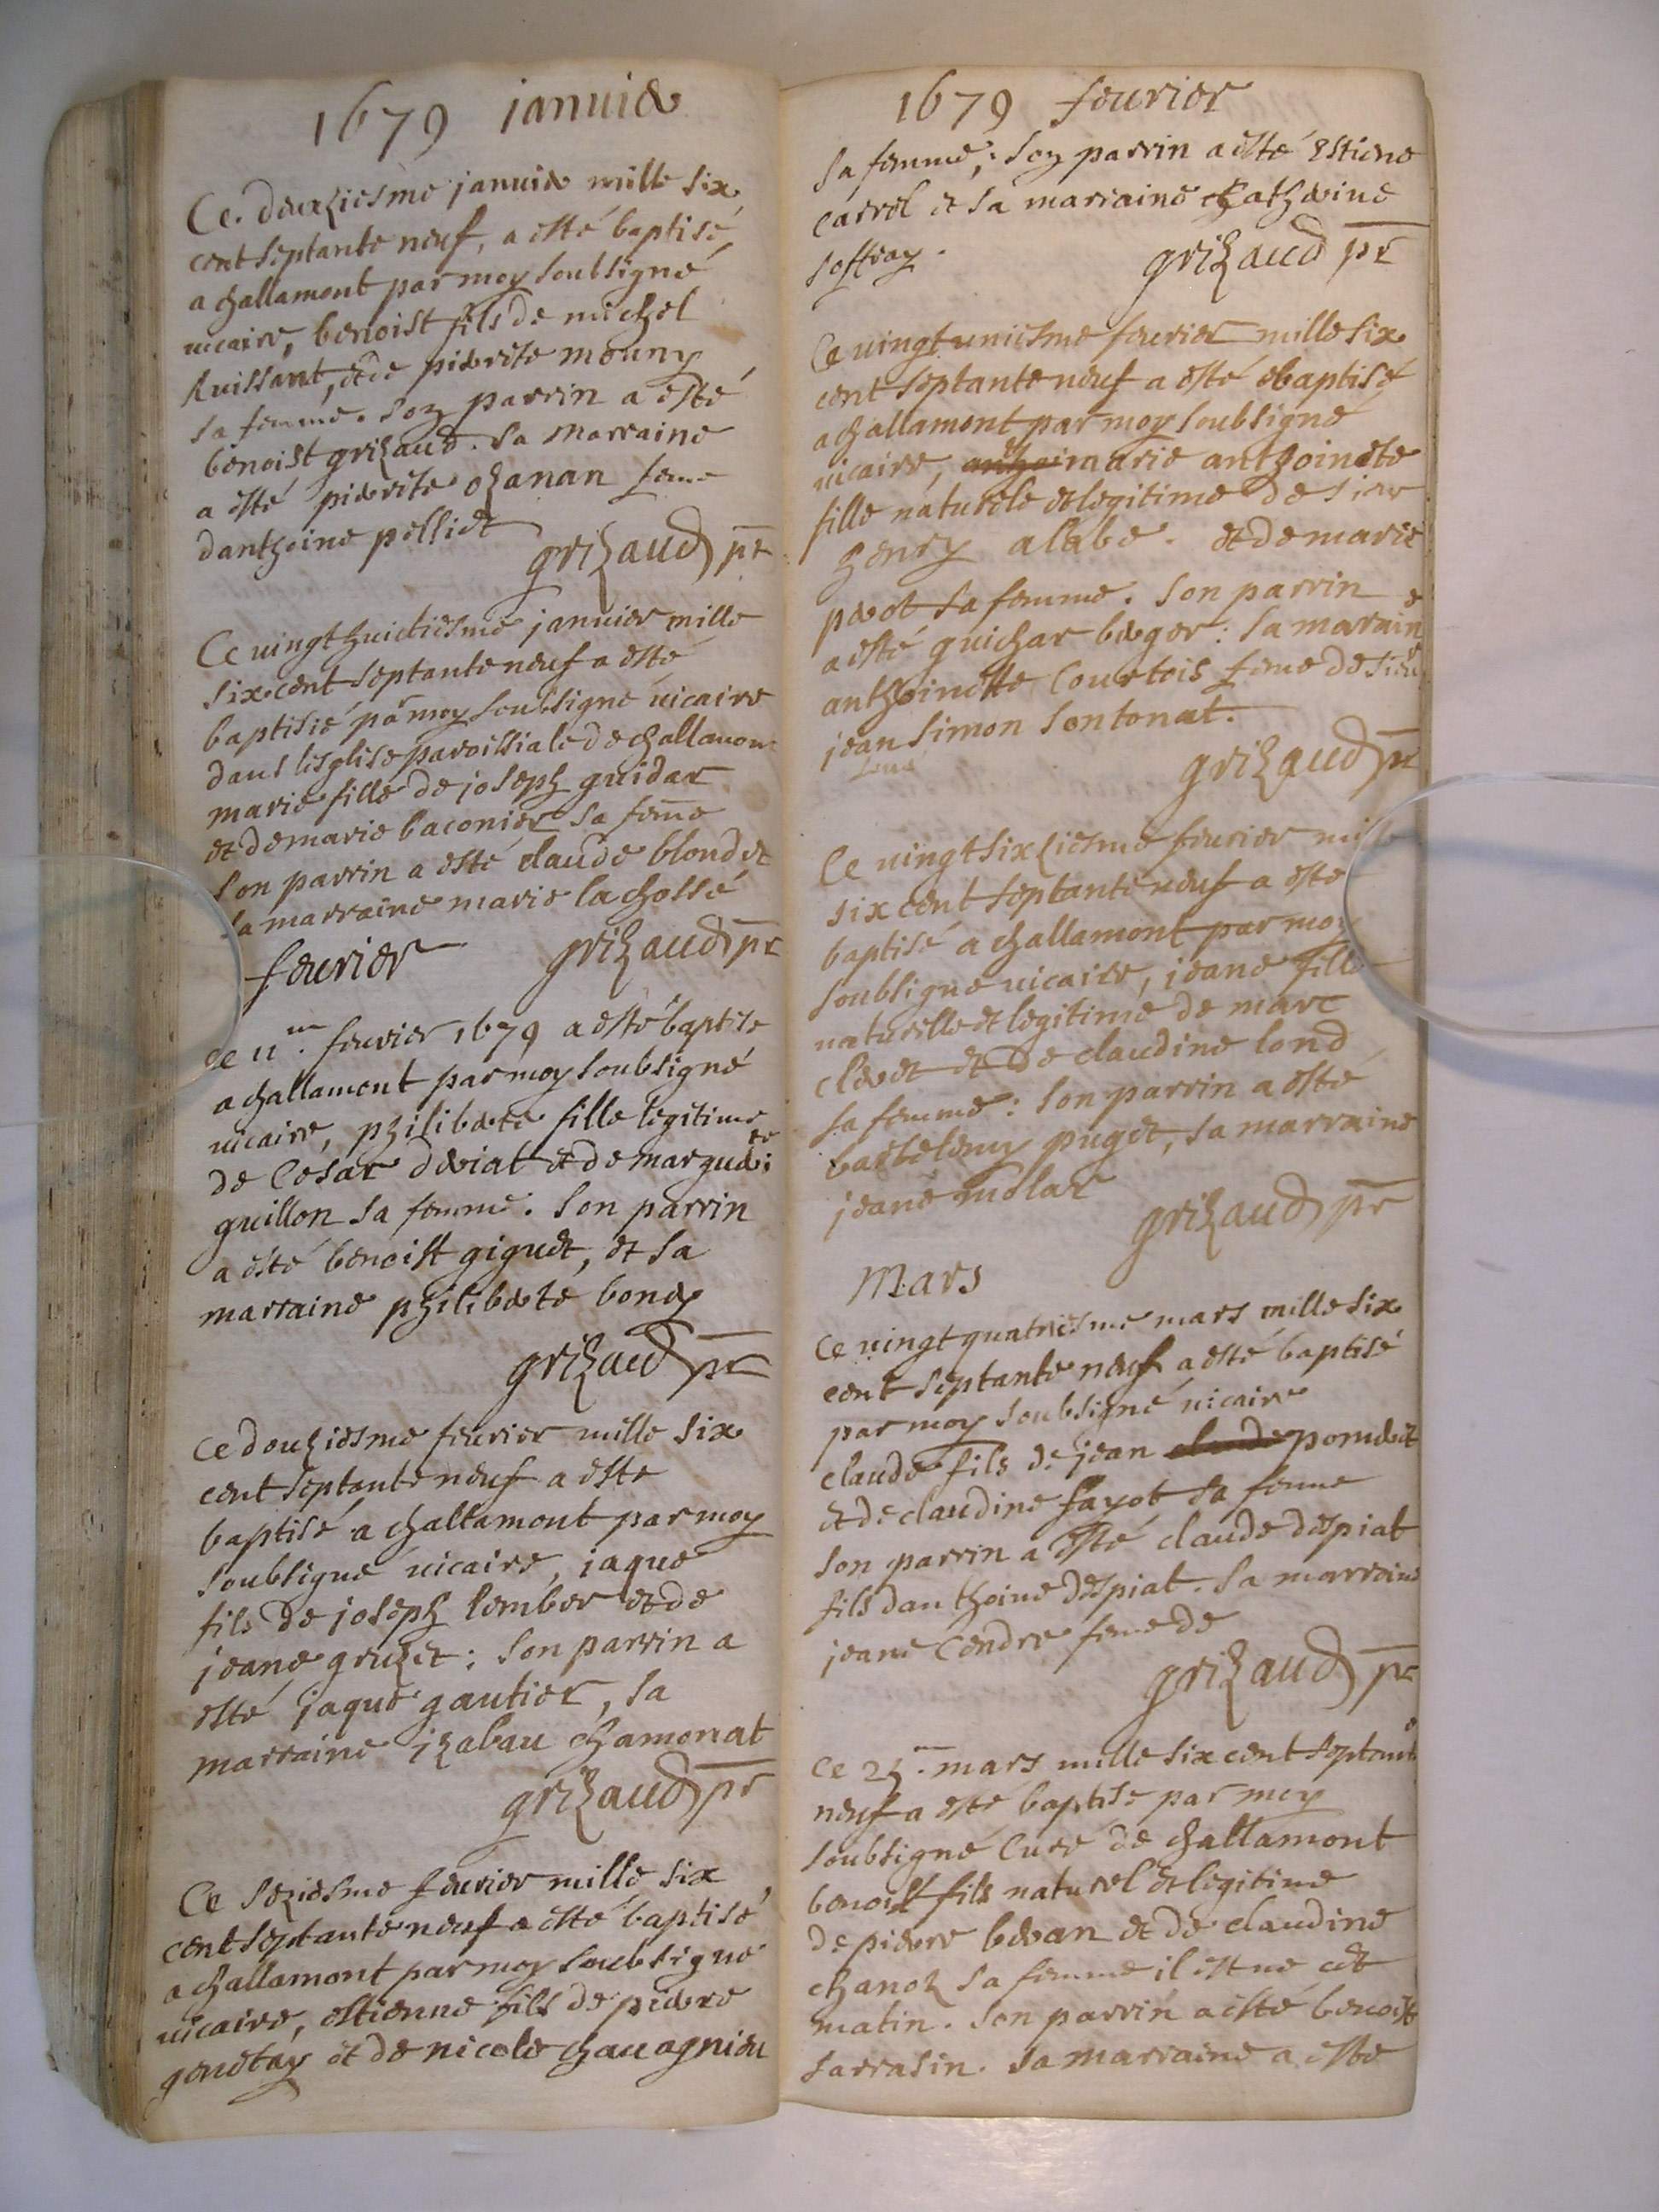 1679 januier
Ce. deuxiesme januier mille six
cent septante neuf, a esté baptisé
a challamont par moy soubsigné
uicaire, benoist fils de michel
Ruissant, et de pierrete mouny
sa femme. son parrin a esté
benoist grizaud. sa marraine
a esté pierrete ozanan feme
danthoine pelliet
grizaud pr
Ce uingt huictiesme januier mille
six cent septante neuf a esté
baptisié par moy soubsigné uicaire
dans lesglise paroissiale de challamont
marie fille de joseph guidar
et de marie baconier sa feme
son parrin a esté claude blondet
sa marraine marie la chossé
feurier grizaud pr
ce 11me feurier 1679 a esté baptise
a challamont par moy soubsigné
uicaire, philiberte fille legitime
de Cesar deriat et de marguerite
guillon sa femme. son parrin
a esté benoist giguet, et sa
marraine philiberte bondy
grizaud pr
ce douziesme feurier mille six
cent septante neuf a esté
baptisé a challamont par moy
soubsigné uicaire, jaque
fils de joseph lember et de
jeane gruzet; son parrin a
esté jaque gautier, sa
marraine izabau chamonat
grizaud pr
Ce seziesme feurier mille six
cent septante neuf a esté baptisé
a challamont par moy soubsigné
uicaire, estienne fils de pierre
genetay et de nicole chauagnieu
1679 feurier
sa femme; son parrin a esté estiene
carrel et sa marraine chatherine
soffray.
grizaud pr
Ce uingt uniesme feurier mille six
cent septante neuf a esté baptisé
a challamont par moy soubsigné
uicaire, marie anthoinette
fille naturele et legitime de sieur
henry alabe. et de marie
peret sa femme. son parrin
a esté guichar berger: sa maraine
anthoinette Courtois feme de sieur
jean simon sontonat.
grizaud pr
Ce uingt sixziesme feurier mille
six cent septante neuf a esté
baptisé a challamont par moy
soubsigné uicaire, jeane fille
naturelle et legitime de marc
cleret et de claudine lond
sa femme: son parrin a esté
bartelemy puget, sa marraine
jeane molar
grizaud pr
Mars
Ce uingt quatriesme mars mille six
cent septante neuf a esté baptisé
par moy soubsigné uicaire
claude fils de jean claude ponuert
et de claudine fayot sa femme
son parrin a esté claude despiat
fils danthoine despiat. sa marraine
jeane Cendre feme de
grizaud pr
Ce 25me mars mille six cent septante
neuf a esté baptise par moy
soubsigné Curé de challamont
benoist fils naturel et legitime
de pierre beran et de claudine
chanoz sa femme il est né cet
matin. son parrin a esté benoist
sarrasin. sa marraine a esté